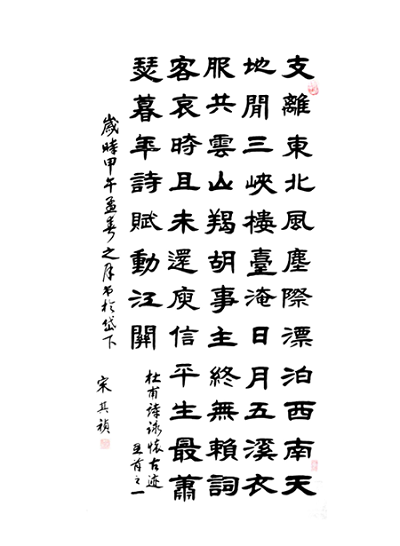 支離東北風塵際漂泊西南天
地閒三峽樓臺淹日月五溪衣
服共雲山羯胡事主終無賴詞
客哀時且未還庾信平生最蕭
瑟暮年詩賦動江關
杜甫詩詠懷古迹
五首之一
歲時甲午孟春之月书於岱下
宋其禎